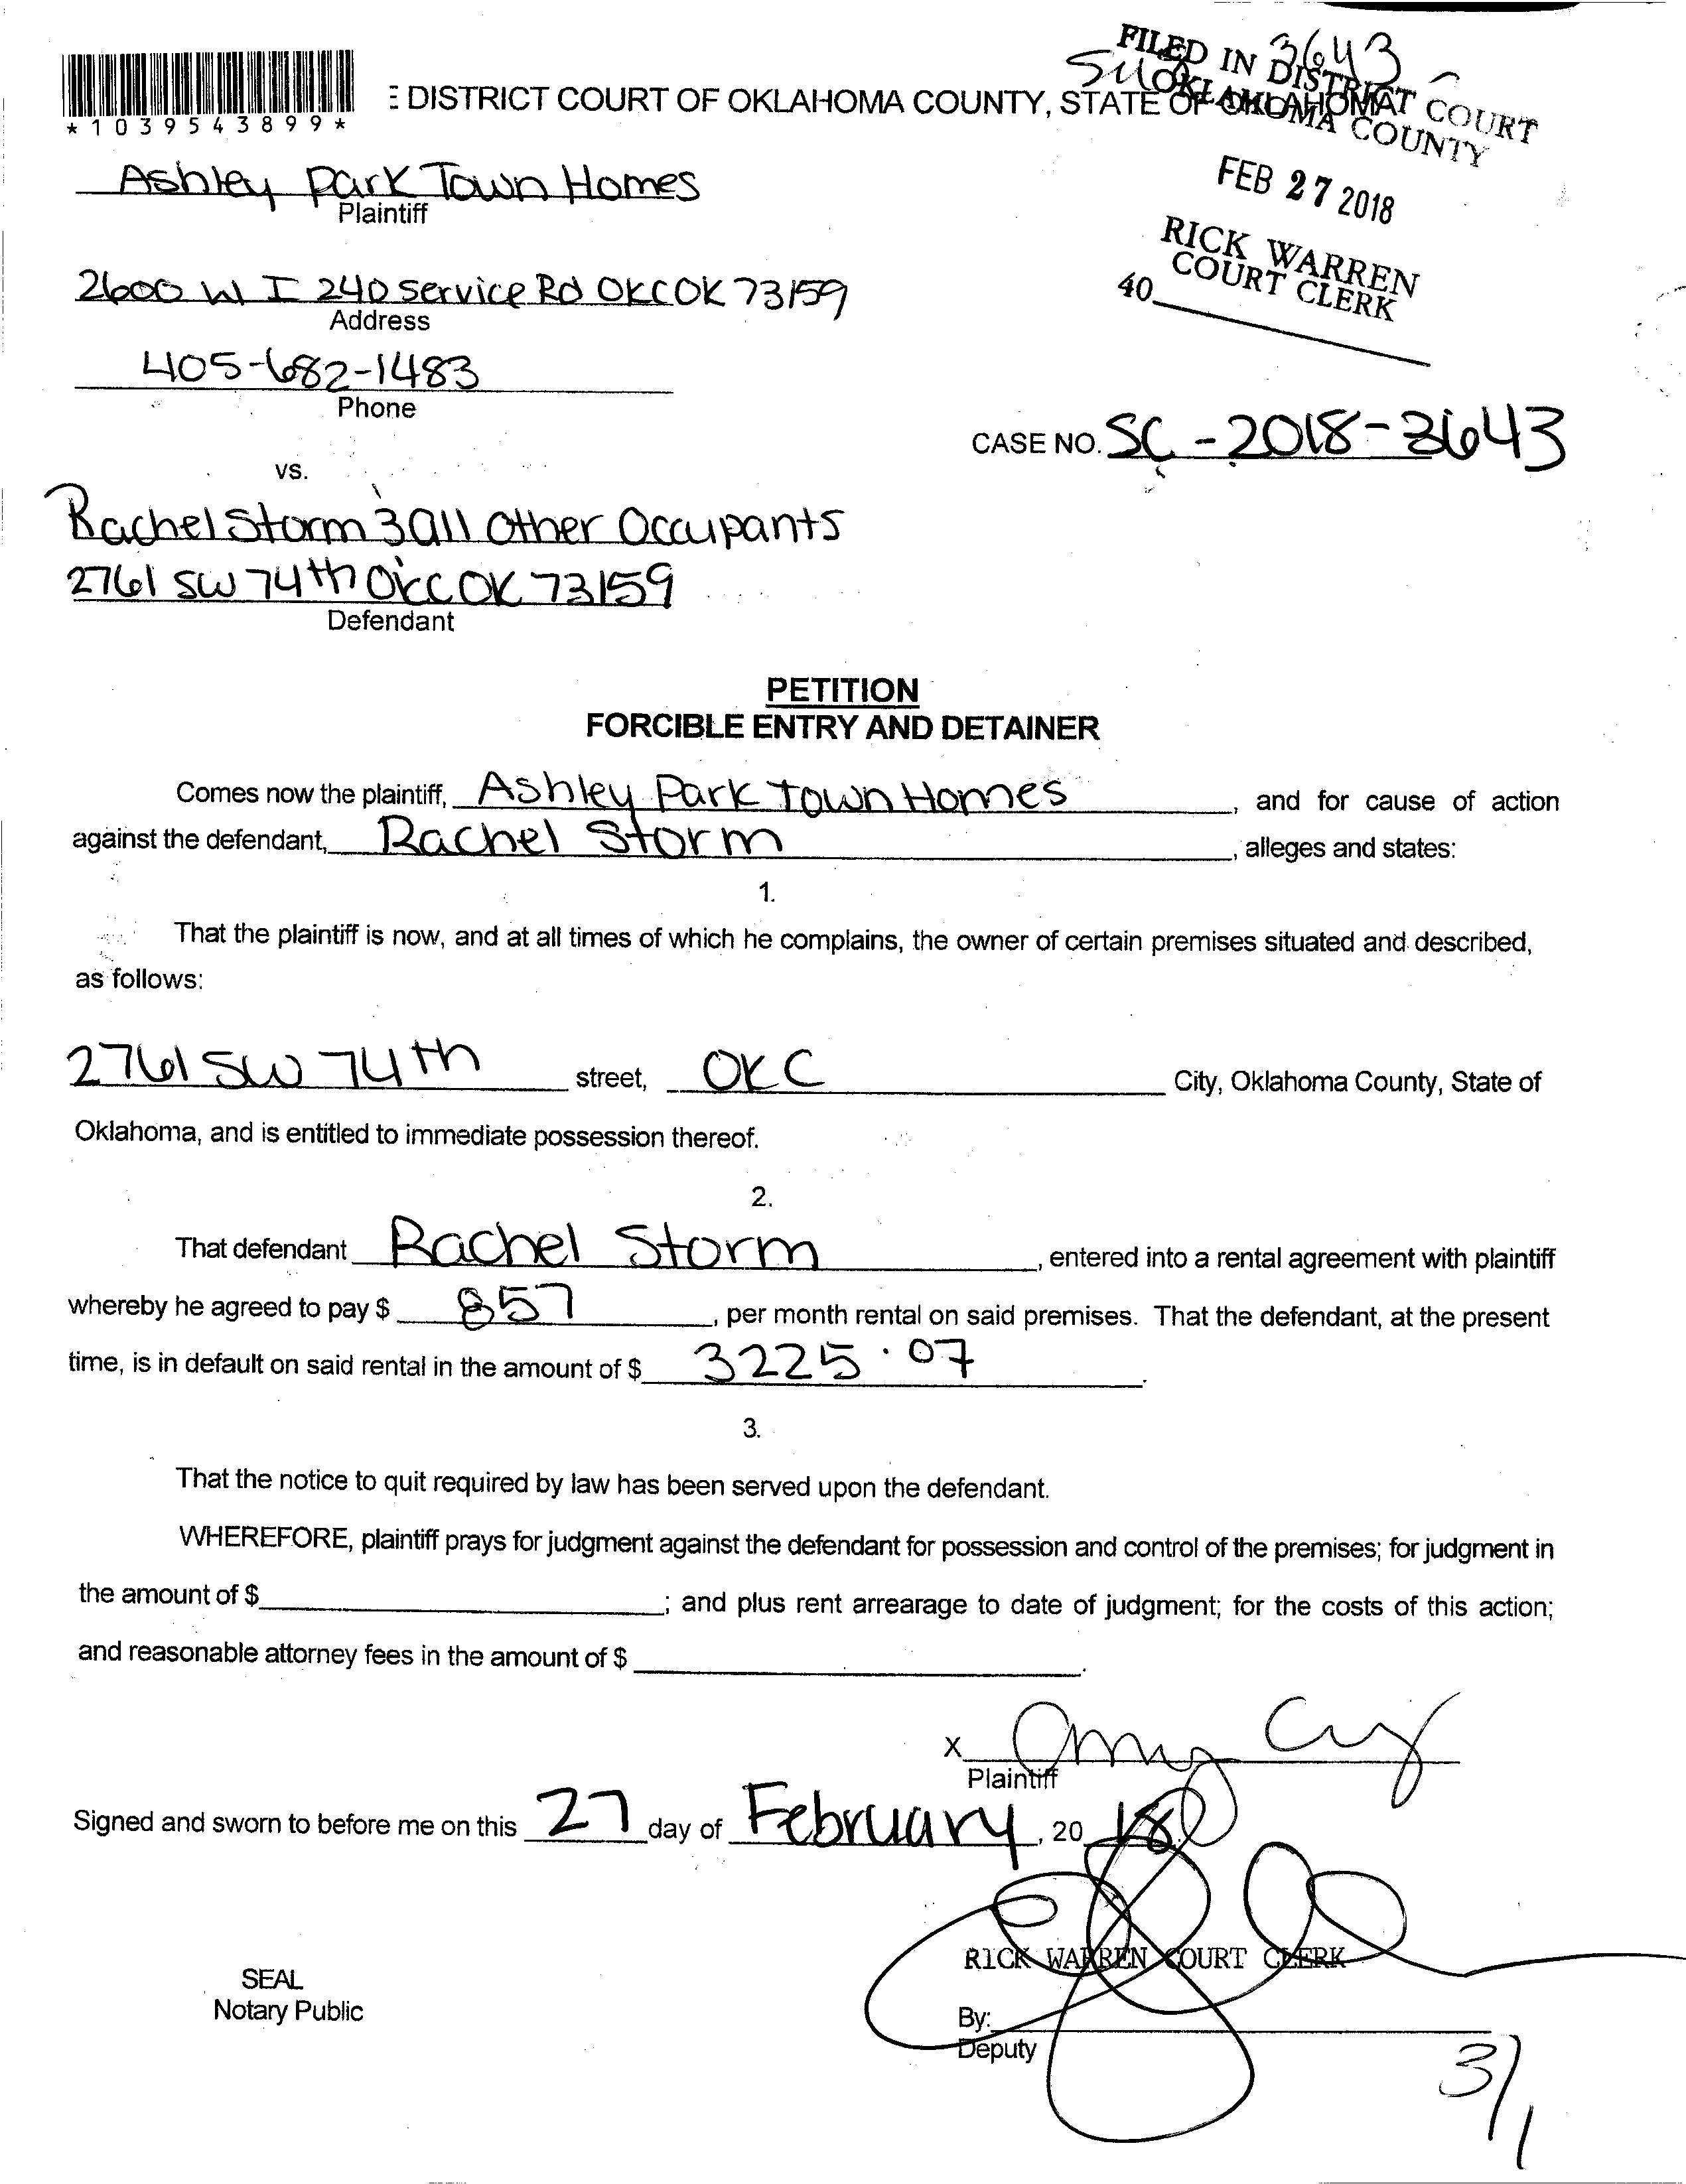 3643
FILED IN DISTRICT COURT
OKLAHOMA COUNTY
E DISTRICT COURT OF OKLAHOMA COUNTY, STATE OF OKLAHOMA
*1039543899*
FEB 27 2018
Ashley Park Town Homes
Plaintiff
RICK WARREN
COURT CLERK
40
2600 W I 240 Service Rd OKC OK 73159
Address
405-682-1483
Phone
CASE NO. SC-2018-3643
vs.
Rachel Storm 3 all Other Occupants
2761 SW 74th OKC OK 73159
Defendant
PETITION
FORCIBLE ENTRY AND DETAINER
Comes now the plaintiff, Ashley Park Town Homes, and for cause of action
against the defendant, Rachel Storm, alleges and states:
1.
That the plaintiff is now, and at all times of which he complains, the owner of certain premises situated and described,
as follows:
2761 SW 74th street, OKC City, Oklahoma County, State of
Oklahoma, and is entitled to immediate possession thereof.
2.
That defendant Rachel Storm, entered into a rental agreement with plaintiff
whereby he agreed to pay $ 857, per month rental on said premises. That the defendant, at the present
time, is in default on said rental in the amount of $ 3225.07.
3.
That the notice to quit required by law has been served upon the defendant.
WHEREFORE, plaintiff prays for judgment against the defendant for possession and control of the premises; for judgment in
the amount of $ ; and plus rent arrearage to date of judgment; for the costs of this action;
and reasonable attorney fees in the amount of $ .
X
Plaintiff
Signed and sworn to before me on this 27 day of February, 2018
RICK WARREN COURT CLERK
SEAL
Notary Public
By:
Deputy
3/1